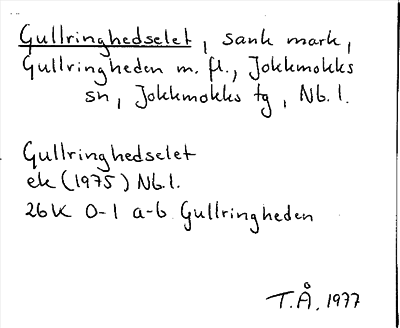 Gullringhedselet, sank mark,
Gullringheden m. fl., Jokkmokks
sn, Jokkmokks tg, Nb. l.
Gullringhedselet
ek (1975) Nb. l.
26K 0-1 a-b Gullringheden
T.Å, 1977